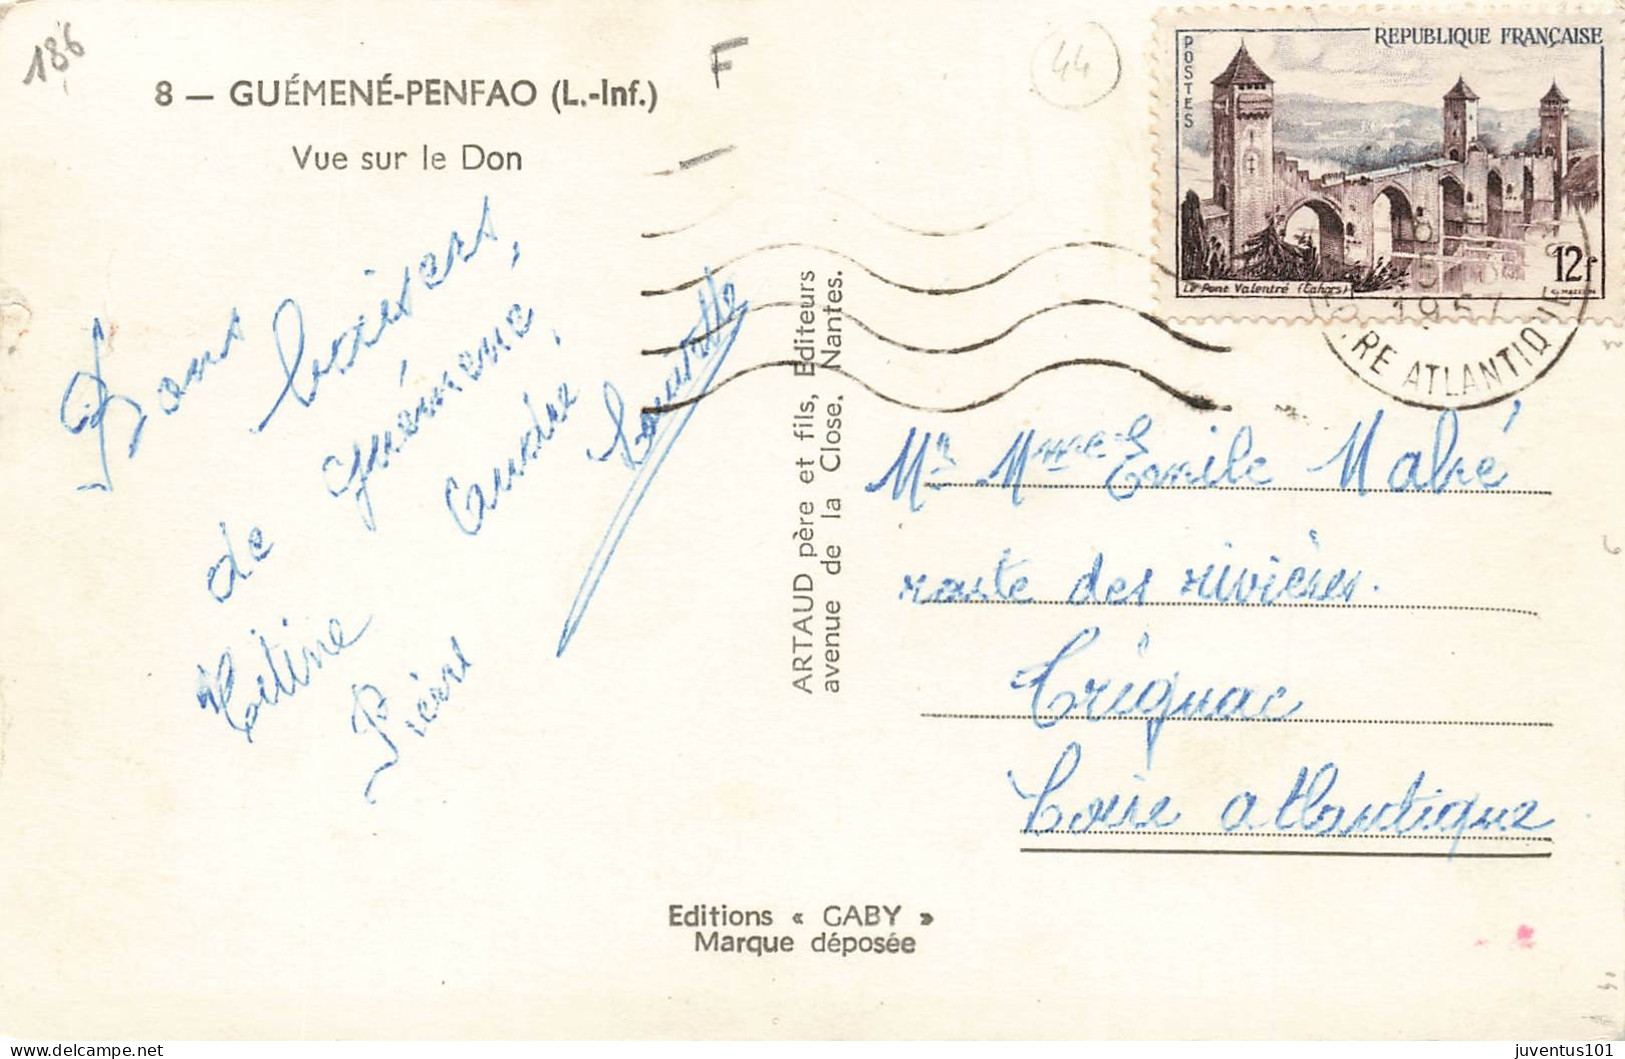 186
8 — GUÉMENÉ-PENFAO (L.-Inf.)
Vue sur le Don
F
44
POSTES
REPUBLIQUE FRANÇAISE
Le Pont Valentré (Cahors)
12f
1957
RE ATLANTIQUE
Bons baisers,
de Guémené
Titine André,
Pierre
ARTAUD père et fils, Editeurs
avenue de la Close. Nantes.
Mr Mme Emile Mahé
route des rivières.
Trignac
Loire atlantique
Editions « GABY »
Marque déposée
juventus101